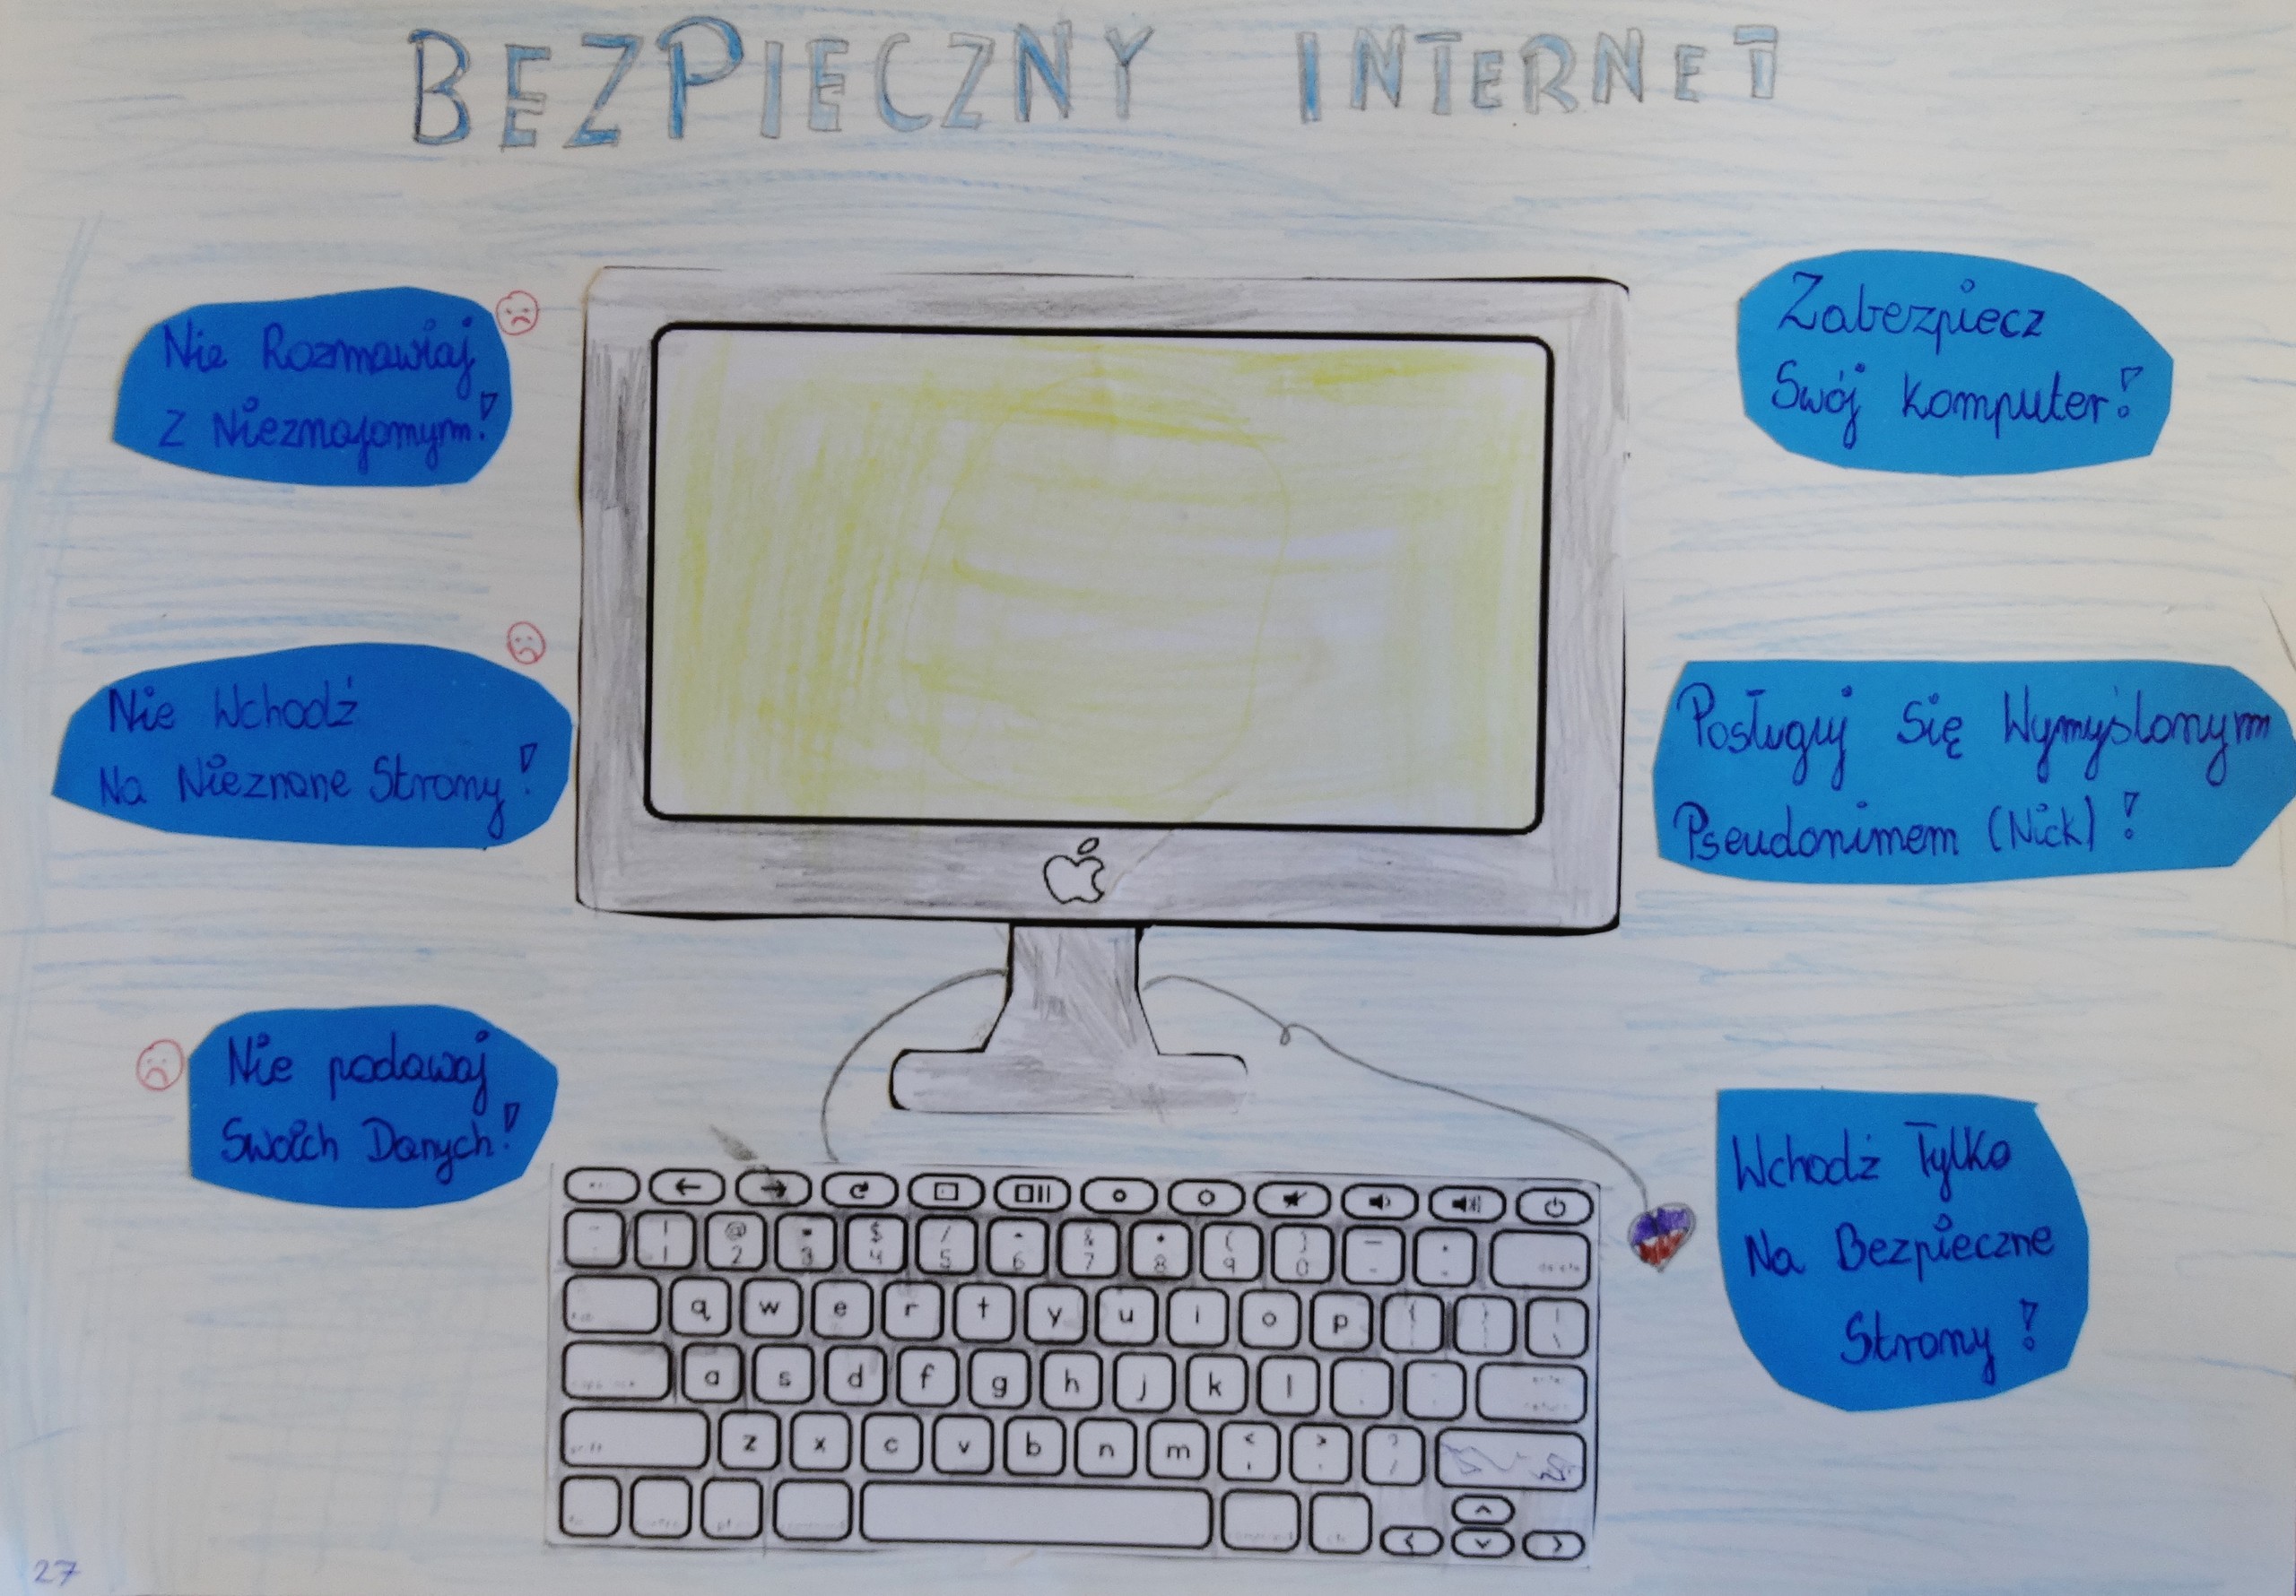 BEZPIECZNY INTERNET
Nie Rozmawiaj
Z Nieznajomym!
Nie Wchodź
Na Nieznane Strony!
Nie podawaj
Swoich Danych!
Zabezpiecz
Swój komputer!
Posługuj Się Wymyślonym
Pseudonimem (Nick)!
Wchodź Tylko
Na Bezpieczne
Strony!
@ $ / & ( )
1 2 3 4 5 6 7 8 9 0
q w e r t y u i o p
a s d f g h j k l
z x c v b n m < > ?
27